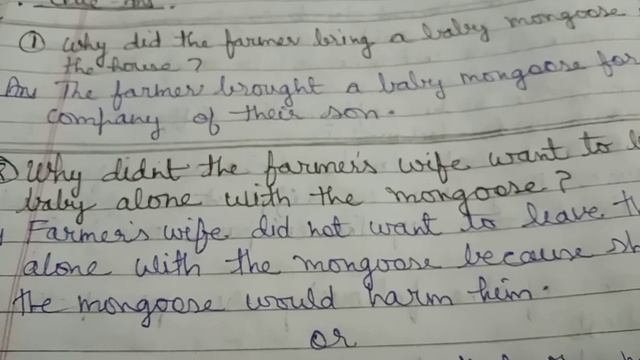 ① Why did the farmer bring a baby mongoose
the house ?
Ans The farmer brought a baby mongoose for
company of their son.
Why didn't the farmer's wife want to
baby alone with the mongoose?
Farmer's wife did not want to leave
alone with the mongoose because
the mongoose would harm him.
or